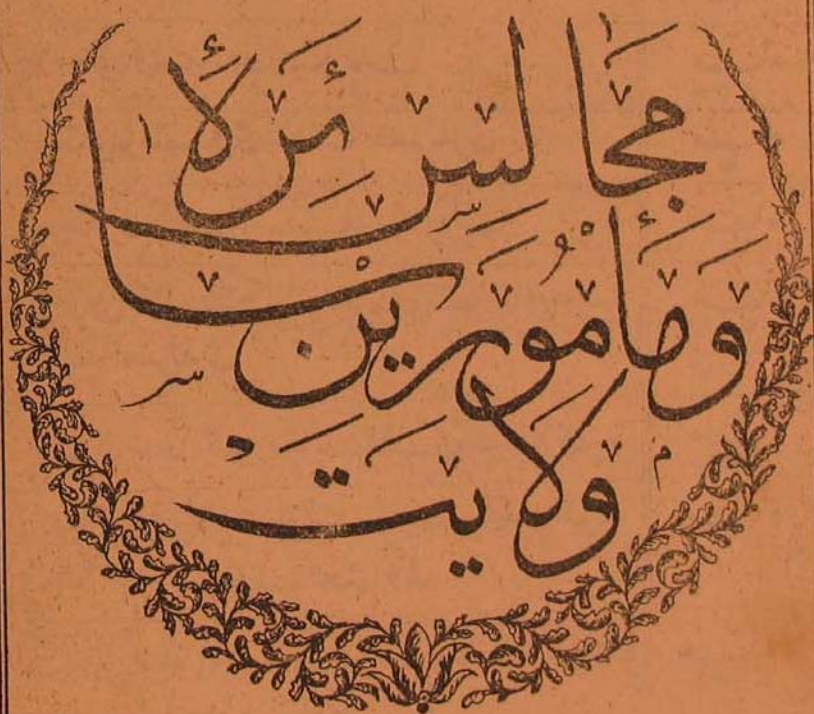 مجالس سائرهٔ
ومأمورين
ولايت